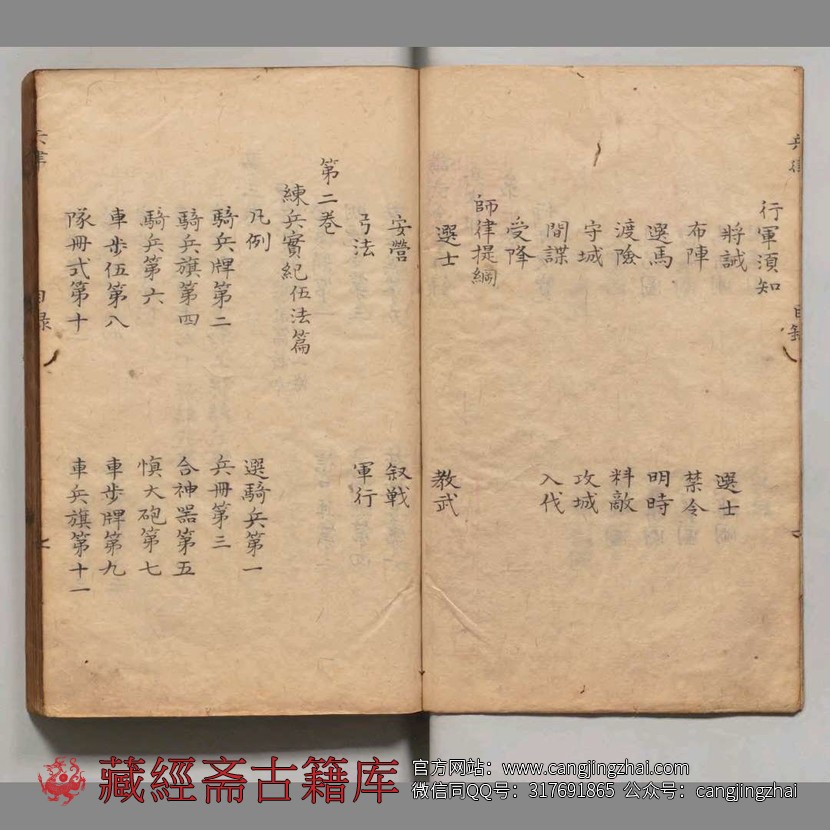 兵律
目錄
行軍須知
將誡 選士
布陣 禁令
選馬 明時
渡險 料敵
守城 攻城
間諜 入代
受降
師律提綱
選士 教武
安營 叙戦
弓法 軍行
第二卷
練兵實紀伍法篇
凡例 選騎兵第一
騎兵牌第二 兵冊第三
騎兵旗第四 合神器第五
騎兵第六 慎大砲第七
車步伍第八 車步牌第九
隊冊式第十 車兵旗第十一
兵律
目録
藏經斋古籍库
官方网站：www.cangjingzhai.com
微信同QQ号：317691865 公众号：cangjingzhai